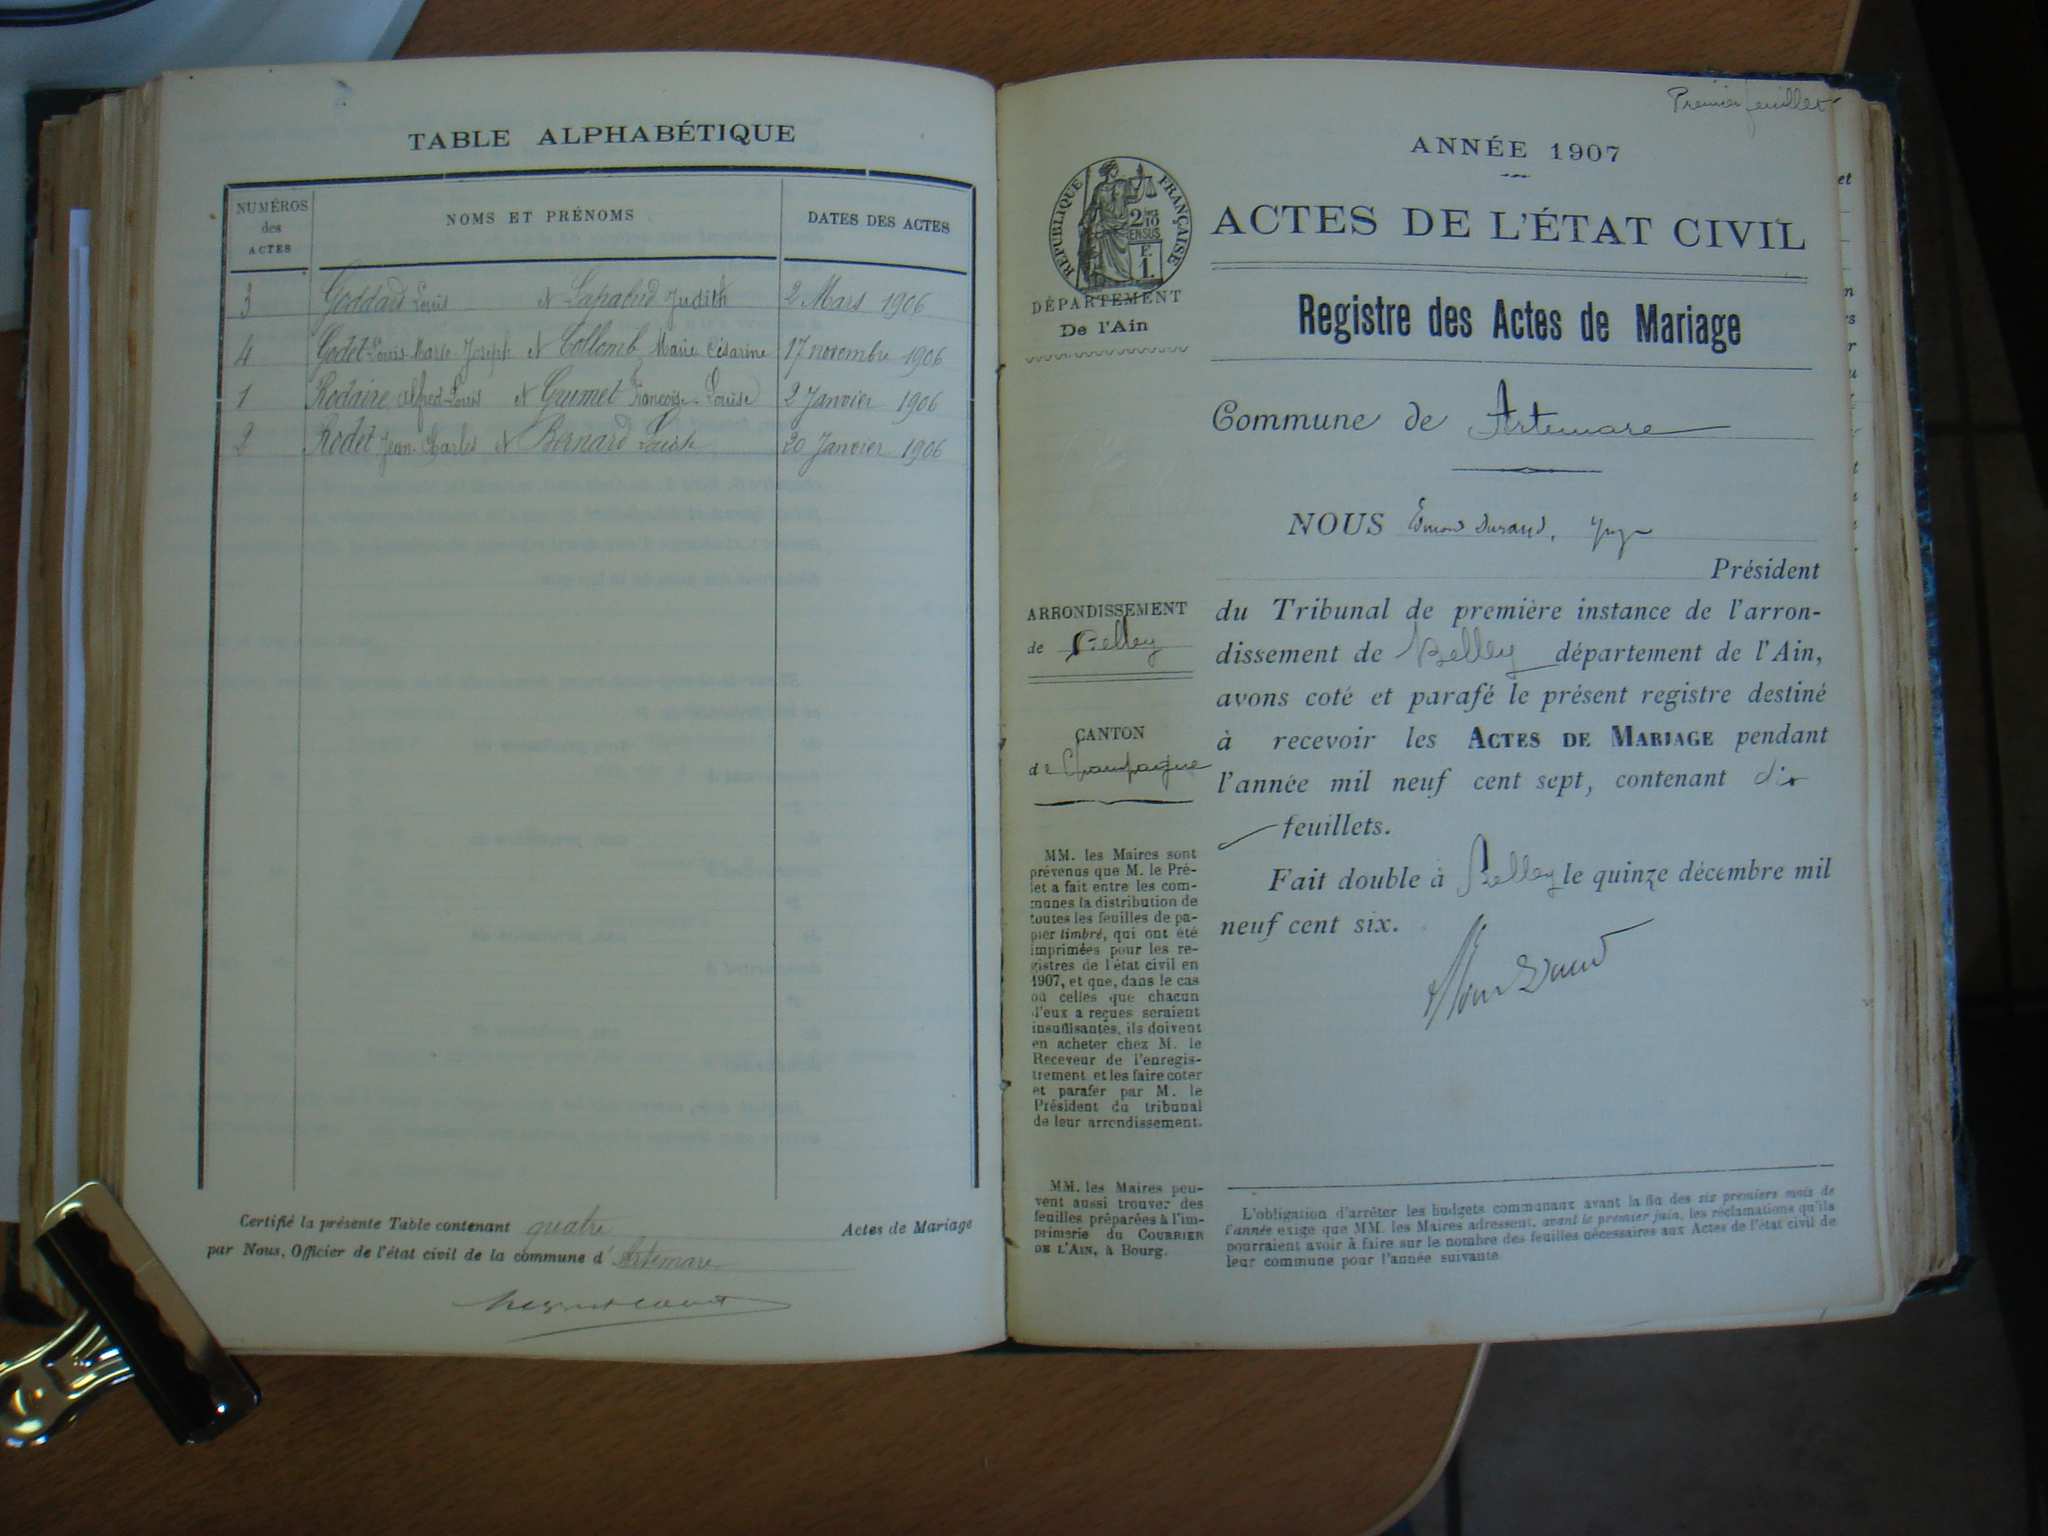 TABLE ALPHABÉTIQUE
NUMÉROS
des
ACTES
NOMS ET PRÉNOMS
DATES DES ACTES
3 Goddard Louis et Judith 2 Mars 1906
4 Godet Louis Marie Joseph et Collomb Marie Césarine 17 novembre 1906
1 Rodaire Alfred Louis et Grumet Françoise Louise 2 Janvier 1906
2 Rodet Jean Charles et Bernard 20 Janvier 1906
Certifié la présente Table contenant quatre Actes de Mariage
par Nous, Officier de l'état civil de la commune d'Artemare
Premier feuillet
ANNÉE 1907
RÉPUBLIQUE FRANÇAISE
ACTES DE L'ÉTAT CIVIL
DÉPARTEMENT
De l'Ain
Registre des Actes de Mariage
Commune de Artemare
NOUS Edmond Durand, Juge
Président
ARRONDISSEMENT
de Belley
CANTON
de Champagne
du Tribunal de première instance de l'arron-
dissement de Belley département de l'Ain,
avons coté et parafé le présent registre destiné
à recevoir les ACTES DE MARIAGE pendant
l'année mil neuf cent sept, contenant dix
feuillets.
Fait double à Belley le quinze décembre mil
neuf cent six.
MM. les Maires sont
prévenus que M. le Pré-
fet a fait entre les com-
munes la distribution de
toutes les feuilles de pa-
pier timbré, qui ont été
imprimées pour les re-
gistres de l'état civil en
1907, et que, dans le cas
où celles que chacun
d'eux a reçues seraient
insuffisantes, ils doivent
en acheter chez M. le
Receveur de l'enregis-
trement et les faire coter
et parafer par M. le
Président du tribunal
de leur arrondissement.
MM. les Maires peu-
vent aussi trouver des
feuilles préparées à l'im-
primerie du COURRIER
DE L'AIN, à Bourg.
L'obligation d'arrêter les budgets communaux avant la fin des six premiers mois de
l'année exige que MM. les Maires adressent, avant le premier juin, les réclamations qu'ils
pourraient avoir à faire sur le nombre des feuilles nécessaires aux Actes de l'état civil de
leur commune pour l'année suivante